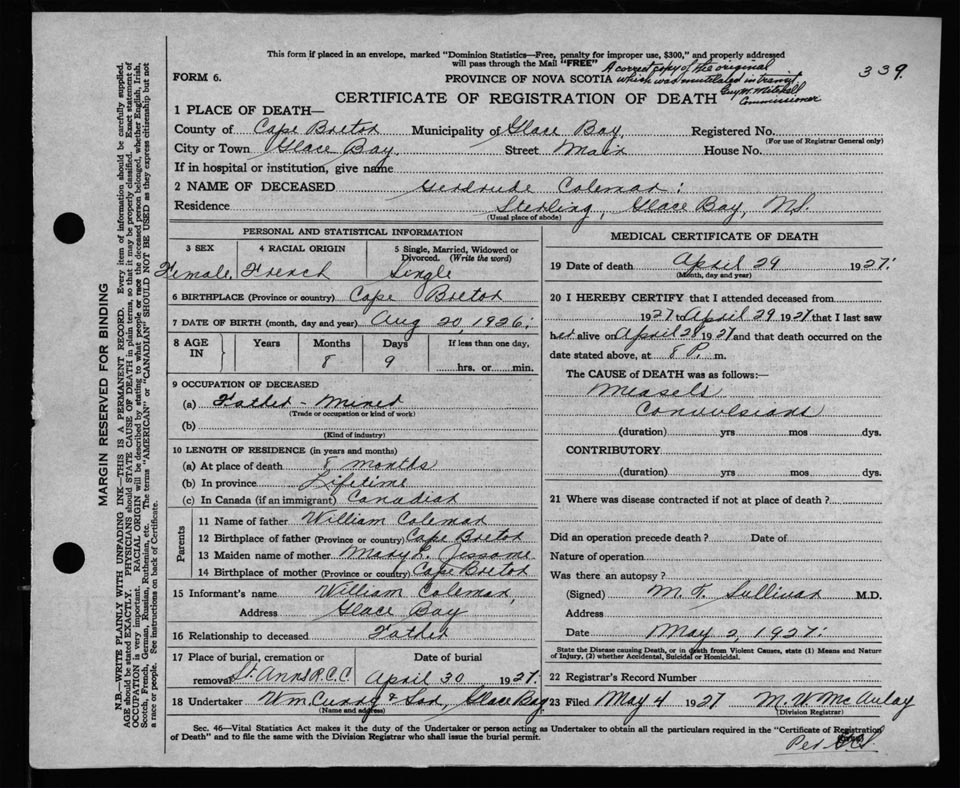 This form if placed in an envelope, marked "Dominion Statistics—Free, penalty for improper use, $300," and properly addressed
will pass through the Mail "FREE"
A correct copy of the original
which was mutilated in transit
Commissioner
339.
FORM 6.
PROVINCE OF NOVA SCOTIA
CERTIFICATE OF REGISTRATION OF DEATH
1 PLACE OF DEATH—
County of Cape Breton Municipality of Glace Bay, Registered No.
(For use of Registrar General only)
City or Town Glace Bay. Street Main House No.
If in hospital or institution, give name
2 NAME OF DECEASED Gertrude Coleman:
Residence Sterling, Glace Bay, N.S.
(Usual place of abode)
PERSONAL AND STATISTICAL INFORMATION
3 SEX 4 RACIAL ORIGIN 5 Single, Married, Widowed or Divorced. (Write the word)
Female, French Single
6 BIRTHPLACE (Province or country) Cape Breton
7 DATE OF BIRTH (month, day and year) Aug 20, 1926:
8 AGE IN Years Months Days If less than one day,
8 9 hrs. or min.
9 OCCUPATION OF DECEASED
(a) Father - Miner
(Trade or occupation or kind of work)
(b)
(Kind of industry)
10 LENGTH OF RESIDENCE (in years and months)
(a) At place of death 8 months
(b) In province Lifetime
(c) In Canada (if an immigrant) Canadian
Parents
11 Name of father William Coleman
12 Birthplace of father (Province or country) Cape Breton
13 Maiden name of mother Mary L. Jessome
14 Birthplace of mother (Province or country) Cape Breton
15 Informant's name William Coleman,
Address Glace Bay
16 Relationship to deceased Father
17 Place of burial, cremation or removal Date of burial
St. Anns R.C.C. April 30 1927.
18 Undertaker Wm. Curry & Son, Glace Bay
(Name and address)
MEDICAL CERTIFICATE OF DEATH
19 Date of death April 29 1927:
(Month, day and year)
20 I HEREBY CERTIFY that I attended deceased from
1927 to April 29 1927 that I last saw
her alive on April 28 1927 and that death occurred on the
date stated above, at 8 P. m.
The CAUSE of DEATH was as follows:—
Measels
Convulsions
(duration) yrs mos dys.
CONTRIBUTORY
(duration) yrs mos dys.
21 Where was disease contracted if not at place of death?
Did an operation precede death? Date of
Nature of operation
Was there an autopsy?
(Signed) M. T. Sullivan M.D.
Address
Date May 2, 1927:
State the Disease causing Death, or in death from Violent Causes, state (1) Means and
Nature of Injury, (2) whether Accidental, Suicidal or Homicidal.
22 Registrar's Record Number
23 Filed May 4 1927 M. W. McAulay
(Division Registrar)
Sec. 46—Vital Statistics Act makes it the duty of the Undertaker or person acting as Undertaker to obtain all the particulars required in the "Certificate of Registration
of Death" and to file the same with the Division Registrar who shall issue the burial permit.
Per
MARGIN RESERVED FOR BINDING
N.B.—WRITE PLAINLY WITH UNFADING INK—THIS IS A PERMANENT RECORD. Every item of information should be carefully supplied.
AGE should be stated EXACTLY. PHYSICIANS should STATE CAUSE OF DEATH in plain terms, so that it may be properly classified. Exact statement of
OCCUPATION is very important. RACIAL ORIGIN will be described by stating to what people or race the deceased person belonged, whether English, Irish,
Scotch, French, German, Russian, Ruthenian, etc. The terms "AMERICAN" or "CANADIAN" SHOULD NOT BE USED as they express citizenship but not
a race or people. See instructions on back of Certificate.